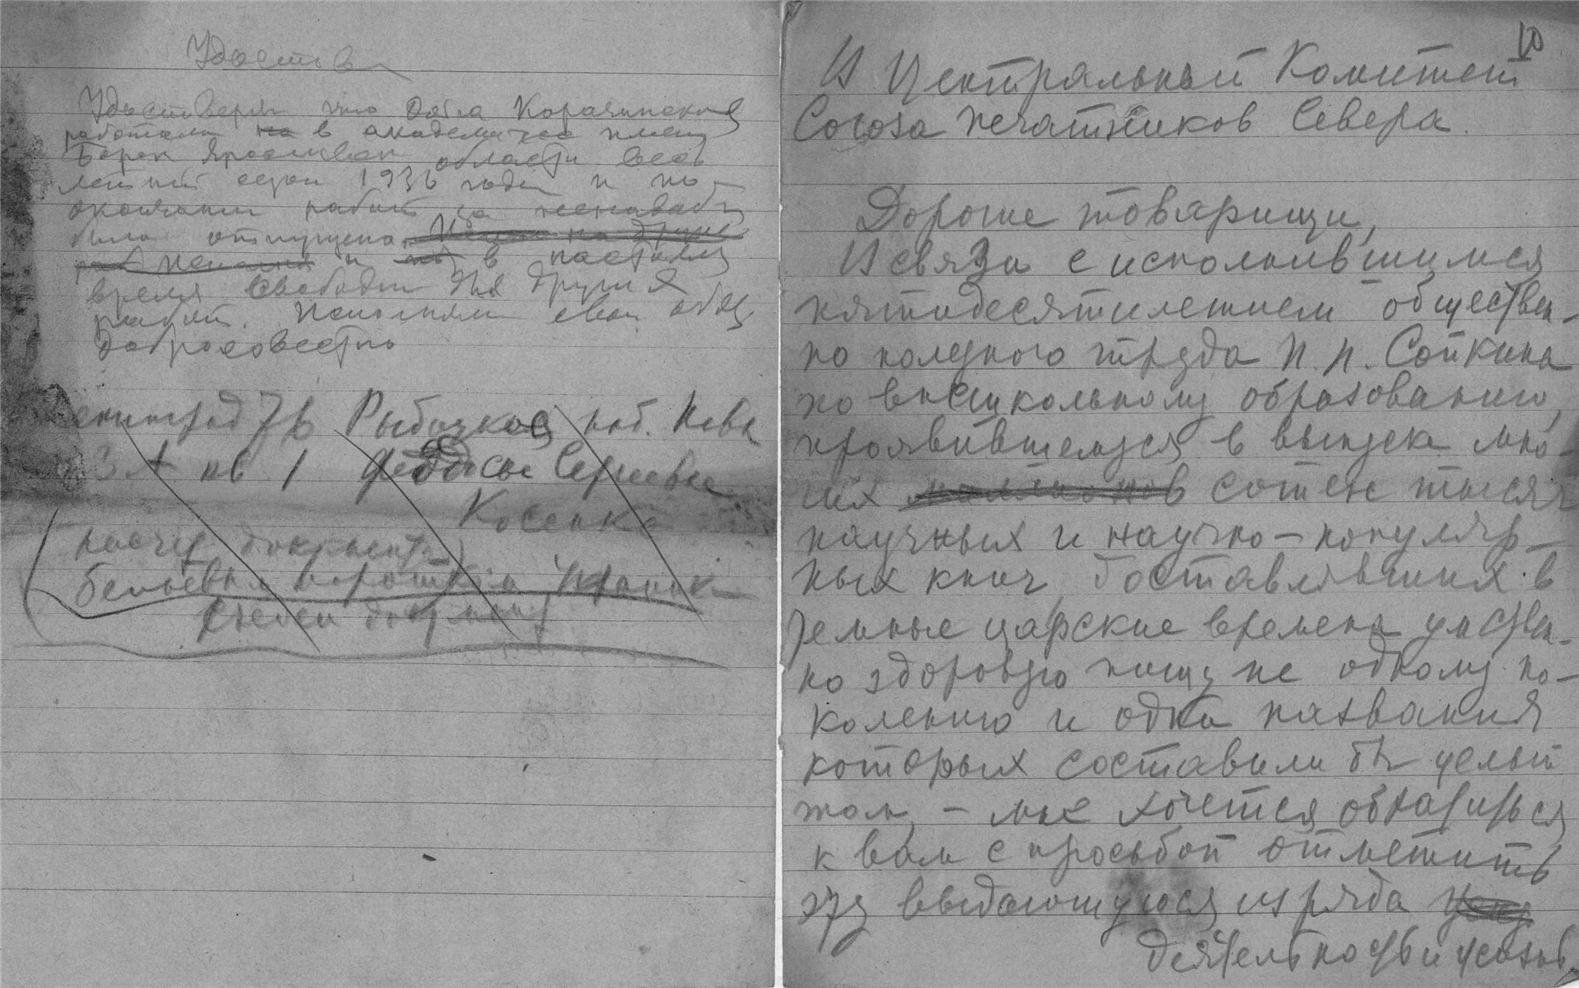 Удостов
Удостоверяю что Дора Корачинская
работала на в академическ имени
Борок Ярославск области весь
летний сезон 1936 года и по
окончании работ за ненадобн
была отпущена
и в настоящ
время свободна для других
работ. Исполняла свои обяз.
добросовестно
Ленинград 76 Рыбацкое наб. Невы
3 А кв 1 Феодосье Сергеевне
Косенко
10
В Центральный Комитет
Союза печатников Севера.
Дорогие товарищи,
В связи с исполнившимся
пятидесятилетием обществен-
но полезного труда П. П. Сойкина
по внешкольному образованию,
проявившемуся в выпуске мно-
гих миллионов сотен тысяч
научных и научно-популяр-
ных книг, доставлявших в
темные царские времена умствен-
но здоровую пищу не одному по-
колению и одни названия
которых составили бы целый
том, – мне хочется обратиться
к вам с просьбой отметить
эту выдающуюся из ряда
деятельность и указав,